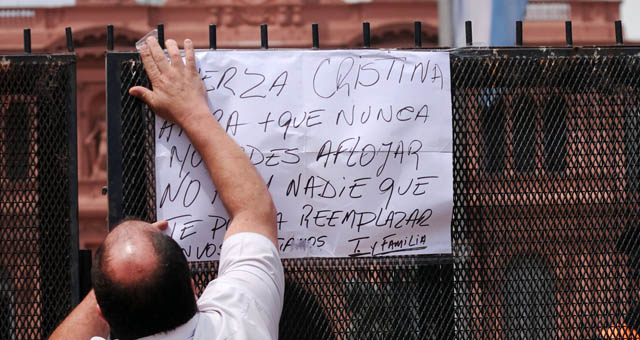 ERZA CRISTINA
RA + QUE NUNCA
DES AFLOJAR
NO NADIE QUE
TE REEMPLAZAR
T. y FAMILIA